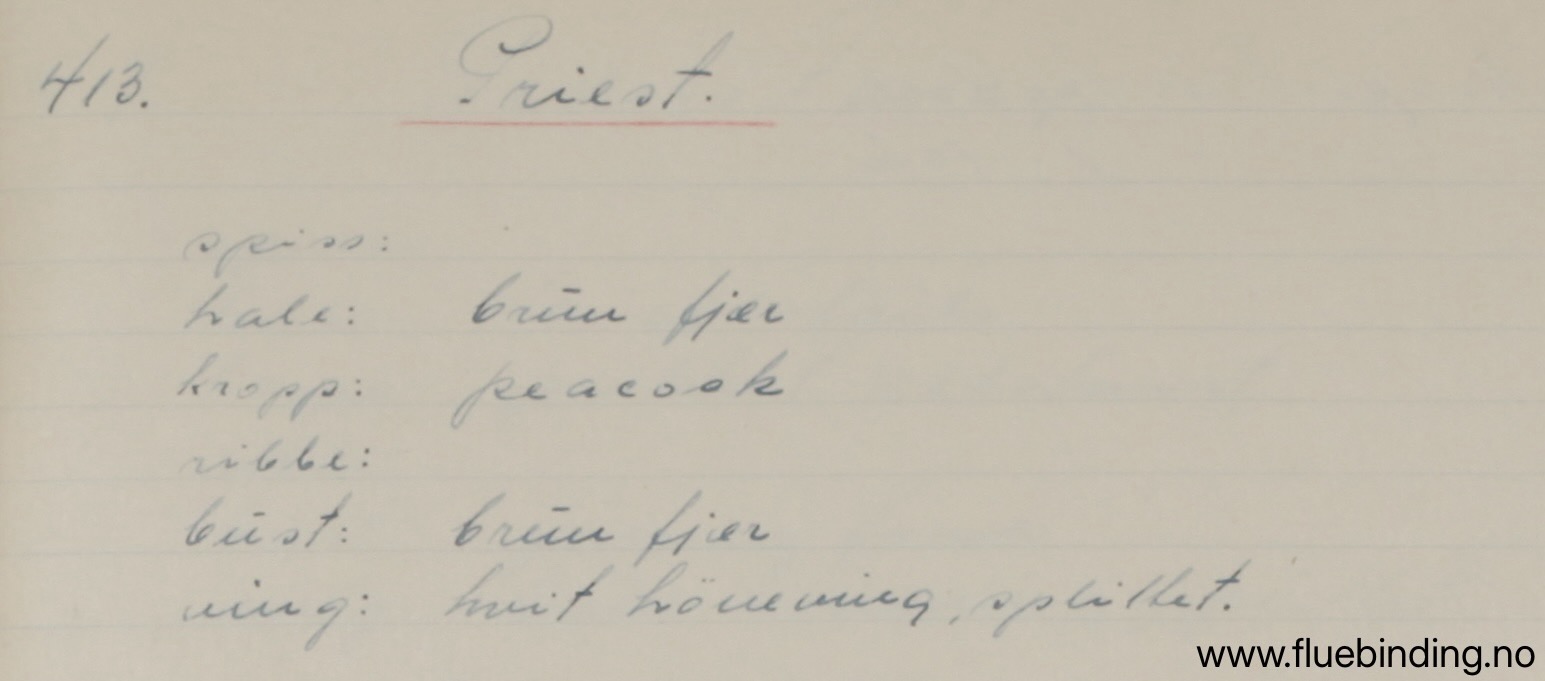 413. Priest.
spiss:
hale: brun fjær
kropp: peacock
ribbe:
bust: brun fjær
ving: hvit höneving, splittet.
www.fluebinding.no